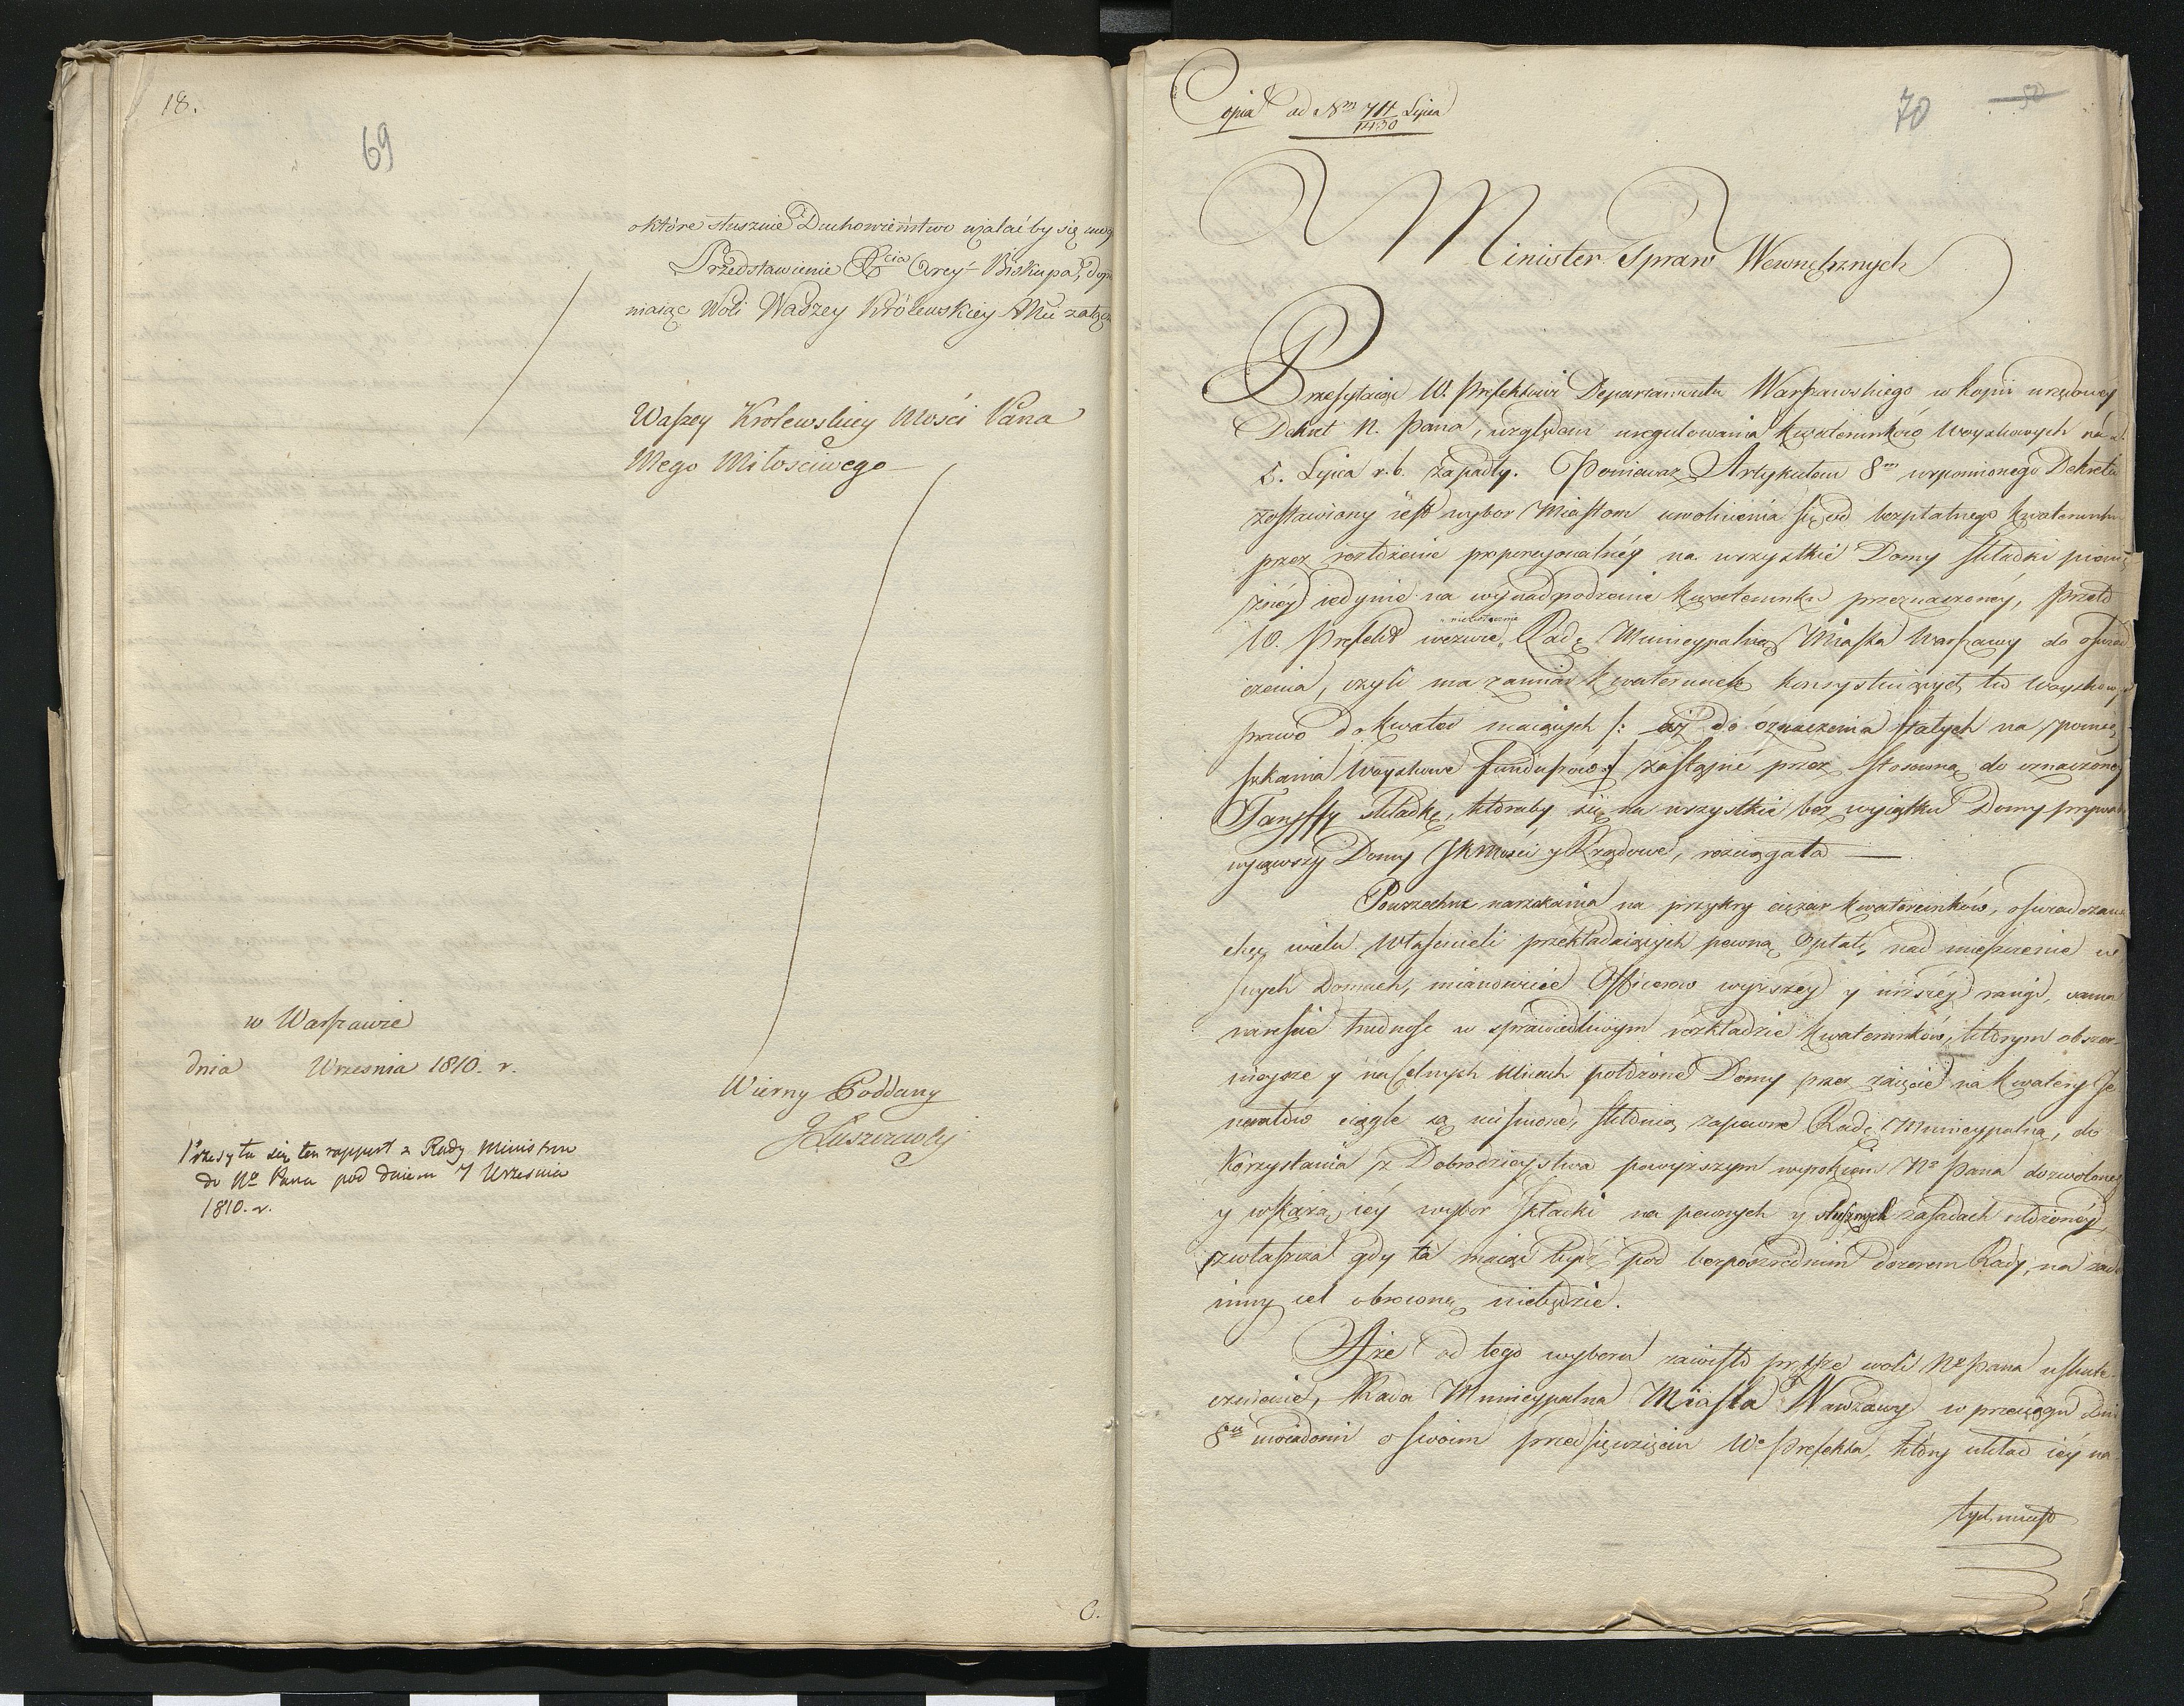 18.
69
o które słusznie Duchowieństwo użalać by się
Przedstawienie Xcia Arcy-Biskupa,
niaiąc Woli Waszey Królewskiey Mci
Waszey Krolewskiey Mości Pana
Mego Miłościwego
w Warszawie
dnia Wrzesnia 1810. r.
Wierny Poddany
JŁuszczewski
Przesyła się ten rapport z Rady Ministrow
do No Pana pod dniem 7 Wrzesnia
1810. r.
C.
Copia ad Nm 711/1430 Lipca
70
50
Minister Spraw Wewnętrznych
Przesyłaiąc W. Prefektowi Departamentu Warszawskiego w kopii urzędowey
Dekret N. Pana, względem uregulowania kwaterunków Woyskowych na d.
5. Lipca r. b. zapadły. Ponieważ Artykułem 8m wspomionego Dekretu
zostawiony iest wybor Miastom uwolnienia się od bezpłatnego kwaterunku
przez rozłożenie proporcyonalnéy na wszystkie Domy składki pienię
żnéy iedynie na wynadgrodzenie kwaterunku przeznaczoney, przeto
W. Prefekt wezwie niezwłocznie Radę Municypalną Miasta Warszawy do oświad
czenia, czyli ma zamiar kwaterunek konsystuiących tu Woyskowych
prawo do kwater maiących /: aż do oznaczenia stałych na pomie
szkania Woyskowe funduszów :/ zastąpić przez stosowną do oznaczoney
Taryffy składkę, któraby się na wszystkie bez wyiątku Domy prywatne
wyiąwszy Domy JKMości y Rządowe, rozciągała —
Powszechne narzekania na przykry ciężar kwaterunków, oświadczana
chęć wielu Właścicieli przekładaiących pewną Opłatę nad mieszczenie w
swych Domach, mianowicie Officerow wyższéy y niższéy rangi, sama
nareście trudność w sprawiedliwym rozkładzie kwaterunków, którym obszer-
nieysze y na celnych Ulicach położone Domy przez zaięcie na kwatery Je
nerałów ciągle są uciśnione, skłonią zapewne Radę Municypalną, do
korzystania z Dobrodzieystwa powyższym wyrokiem No Pana dozwolonego
y wskażą iéy wybor Składki na pewnych y słusznych zasadach ułożonéy,
zwłaszcza gdy ta maiąc bydź pod bezpośrednim dozorem Rady, na żaden
inny cel obroconą niebędzie.
A że od tego wyboru zawisło prędsze woli No Pana uskute-
cznienie, Rada Municypalna Miasta Warszawy w przeciągu Dni
8miu uwiadomi o swoim przedsięwzięciu Wo Prefekta, który układ iéy na-
tychmiast